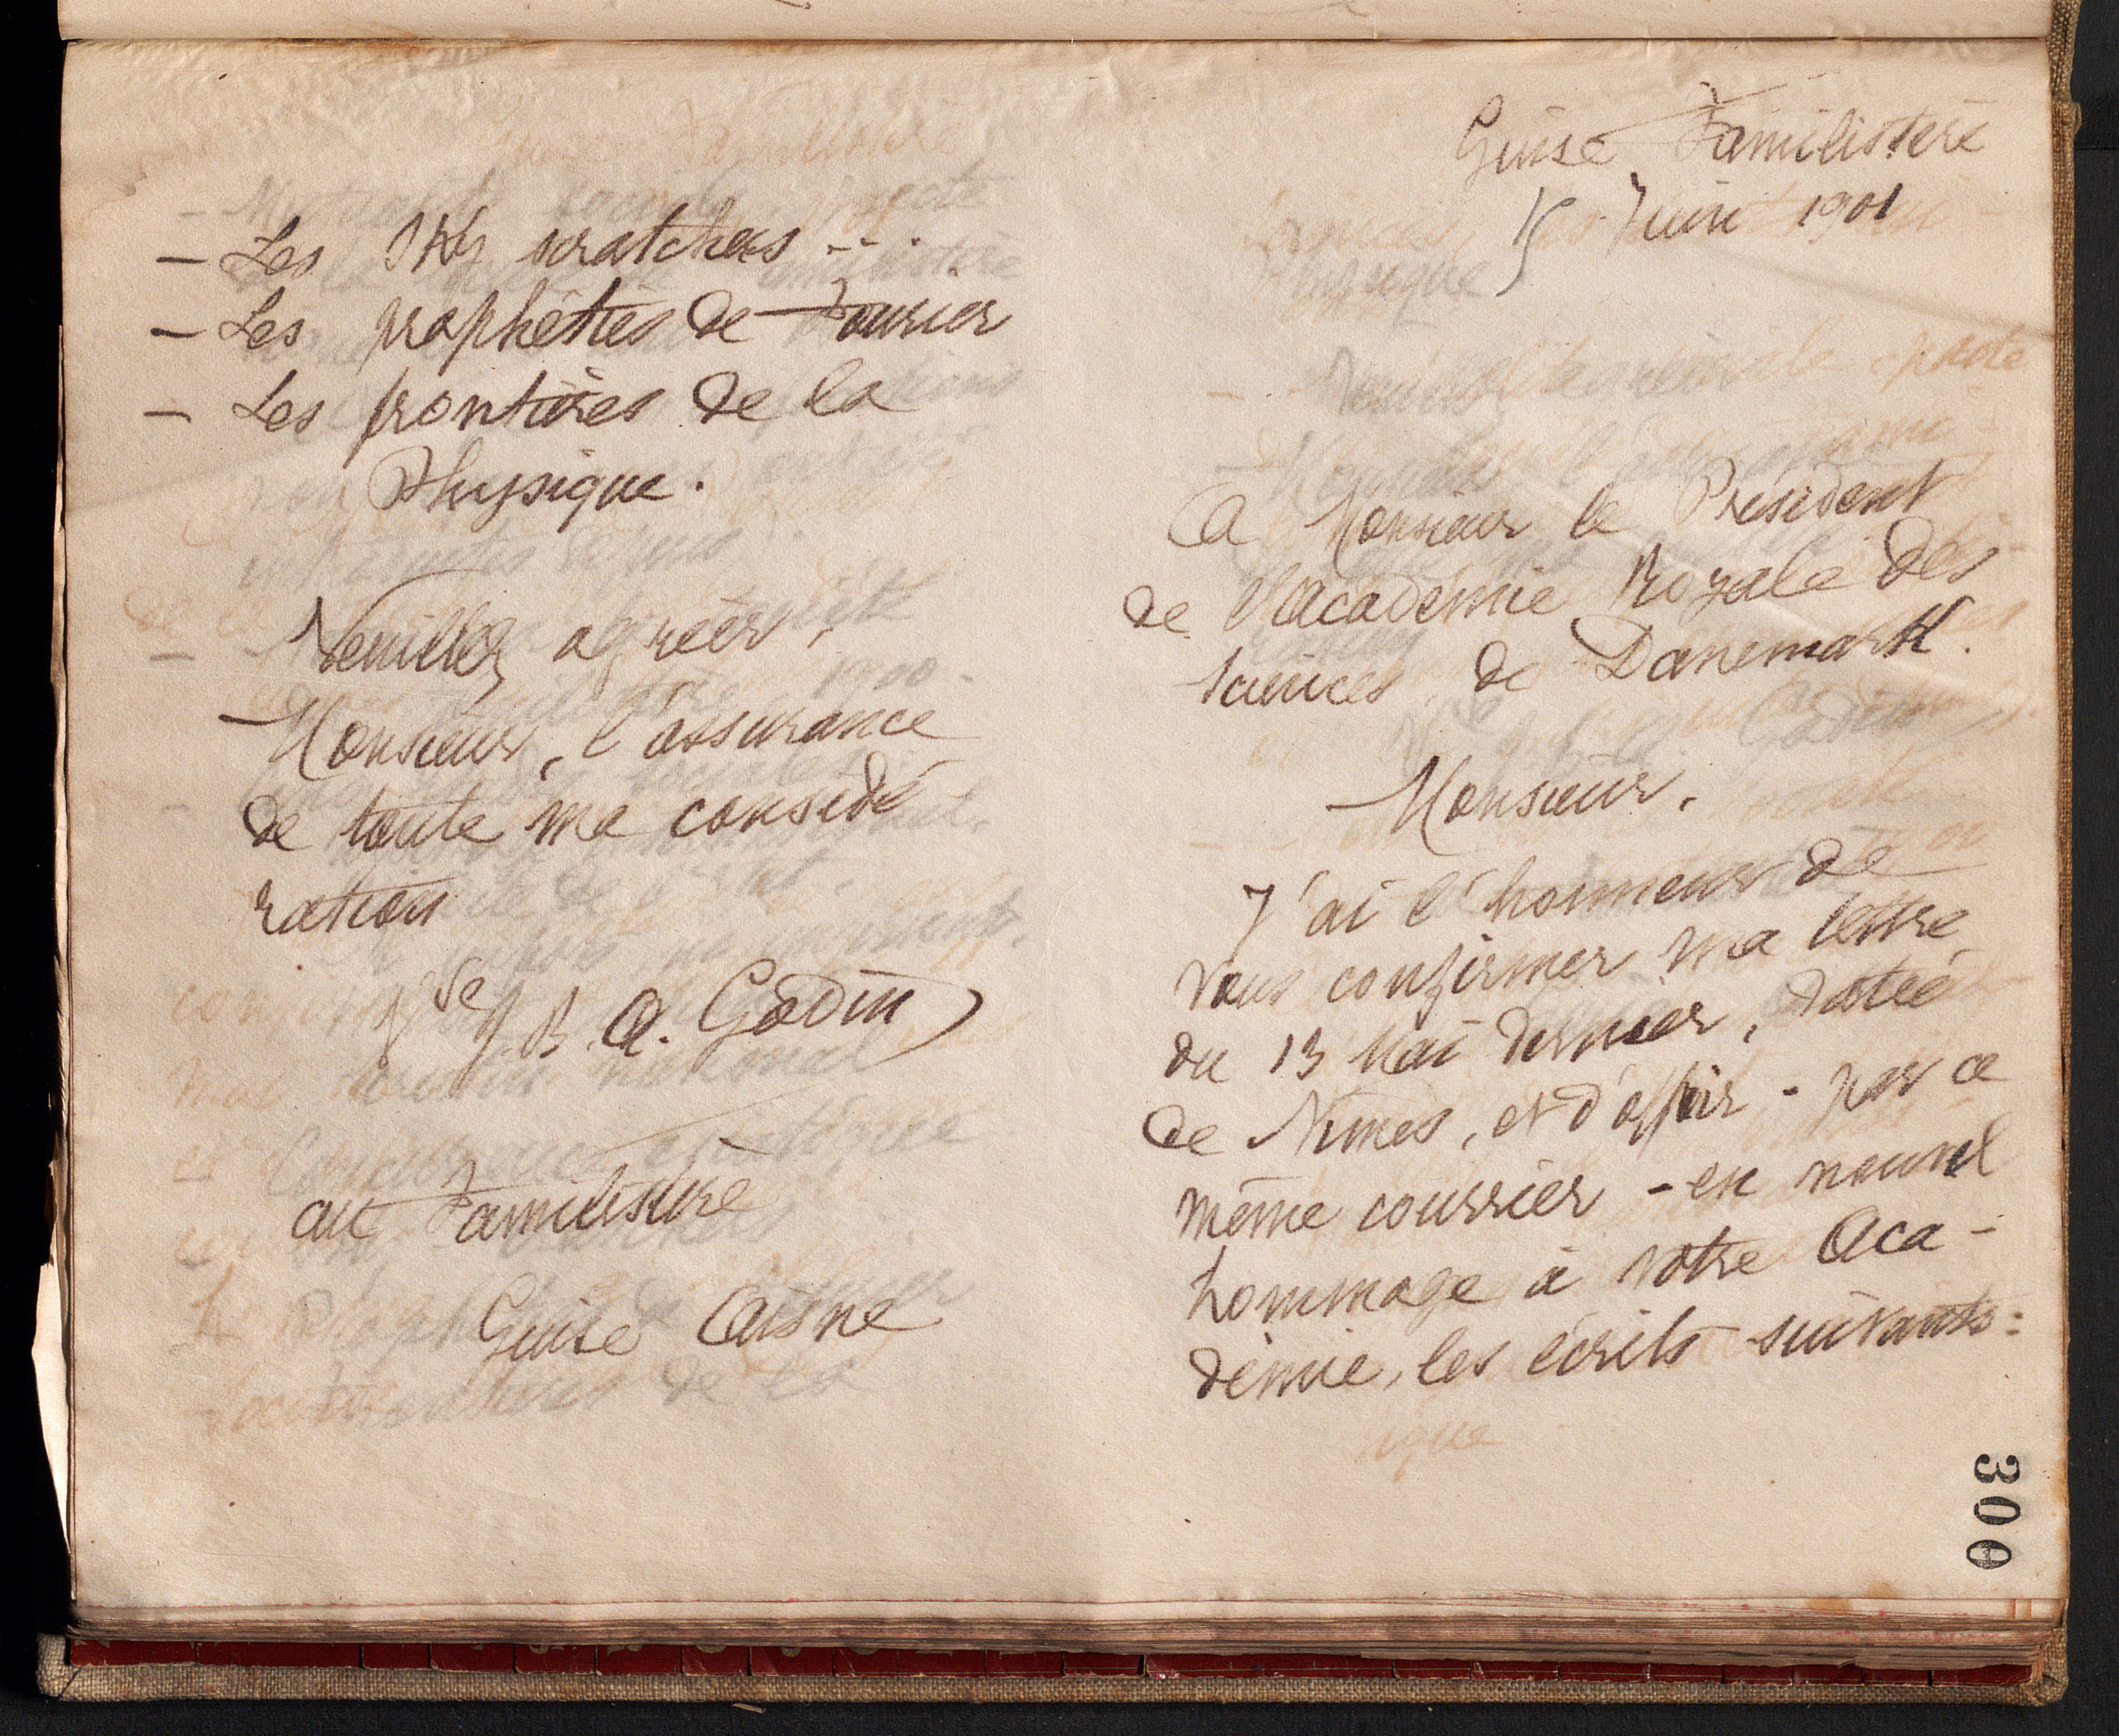 - Les Sky scratchers - . .
- Les prophéties de Fourier
- Les frontières de la
Physique.
Veuillez agréer,
Monsieur, l'assurance
de toute ma considé-
ration
Vve J. B. A. Godin
au Familistère
Guise Aisne
Guise Familistère
5 Juin 1901
A Monsieur le Président
de l'Académie Royale des
Sciences de Danemark.
Monsieur,
J'ai l'honneur de
vous confirmer ma lettre
du 13 Mai dernier, datée
de Nîmes, et d'offrir - par ce
même courrier - en nouvel
hommage à votre Aca-
démie, les écrits suivants :
300